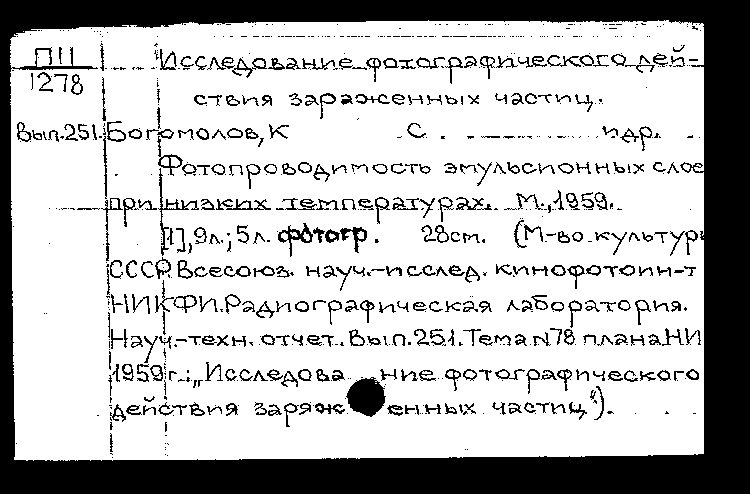 П11 Исследование фотографического дей-
1278 ствия заряженных частиц.
Вып.251. Богомолов, К С. и др.
Фотопроводимость эмульсионных слое
при низких температурах. М., 1959.
[1], 9л.; 5л. фотогр. 28см. (М-во культуры
СССР. Всесоюз. науч.-исслед. кинофотоин-т
НИКФИ. Радиографическая лаборатория.
Науч.-техн. отчет. Вып. 251. Тема N78 плана НИ
1959 г.: „Исследова ние фотографического
действия заряж енных частиц").